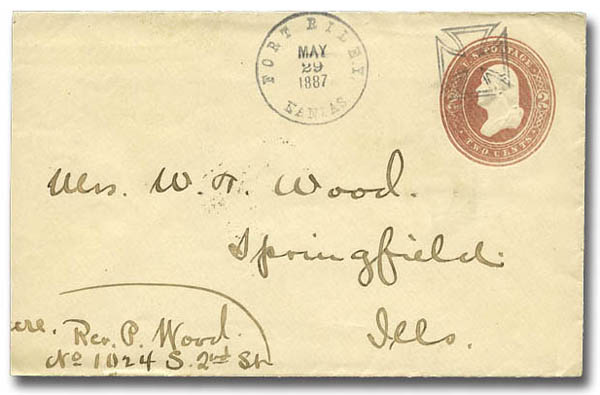 FORT RILEY
MAY
29
1887
KANSAS
U.S. POSTAGE
TWO CENTS
Mrs. W. H. Wood.
Springfield.
Ills.
Rev. P. Wood.
No 1024 S. 2nd St